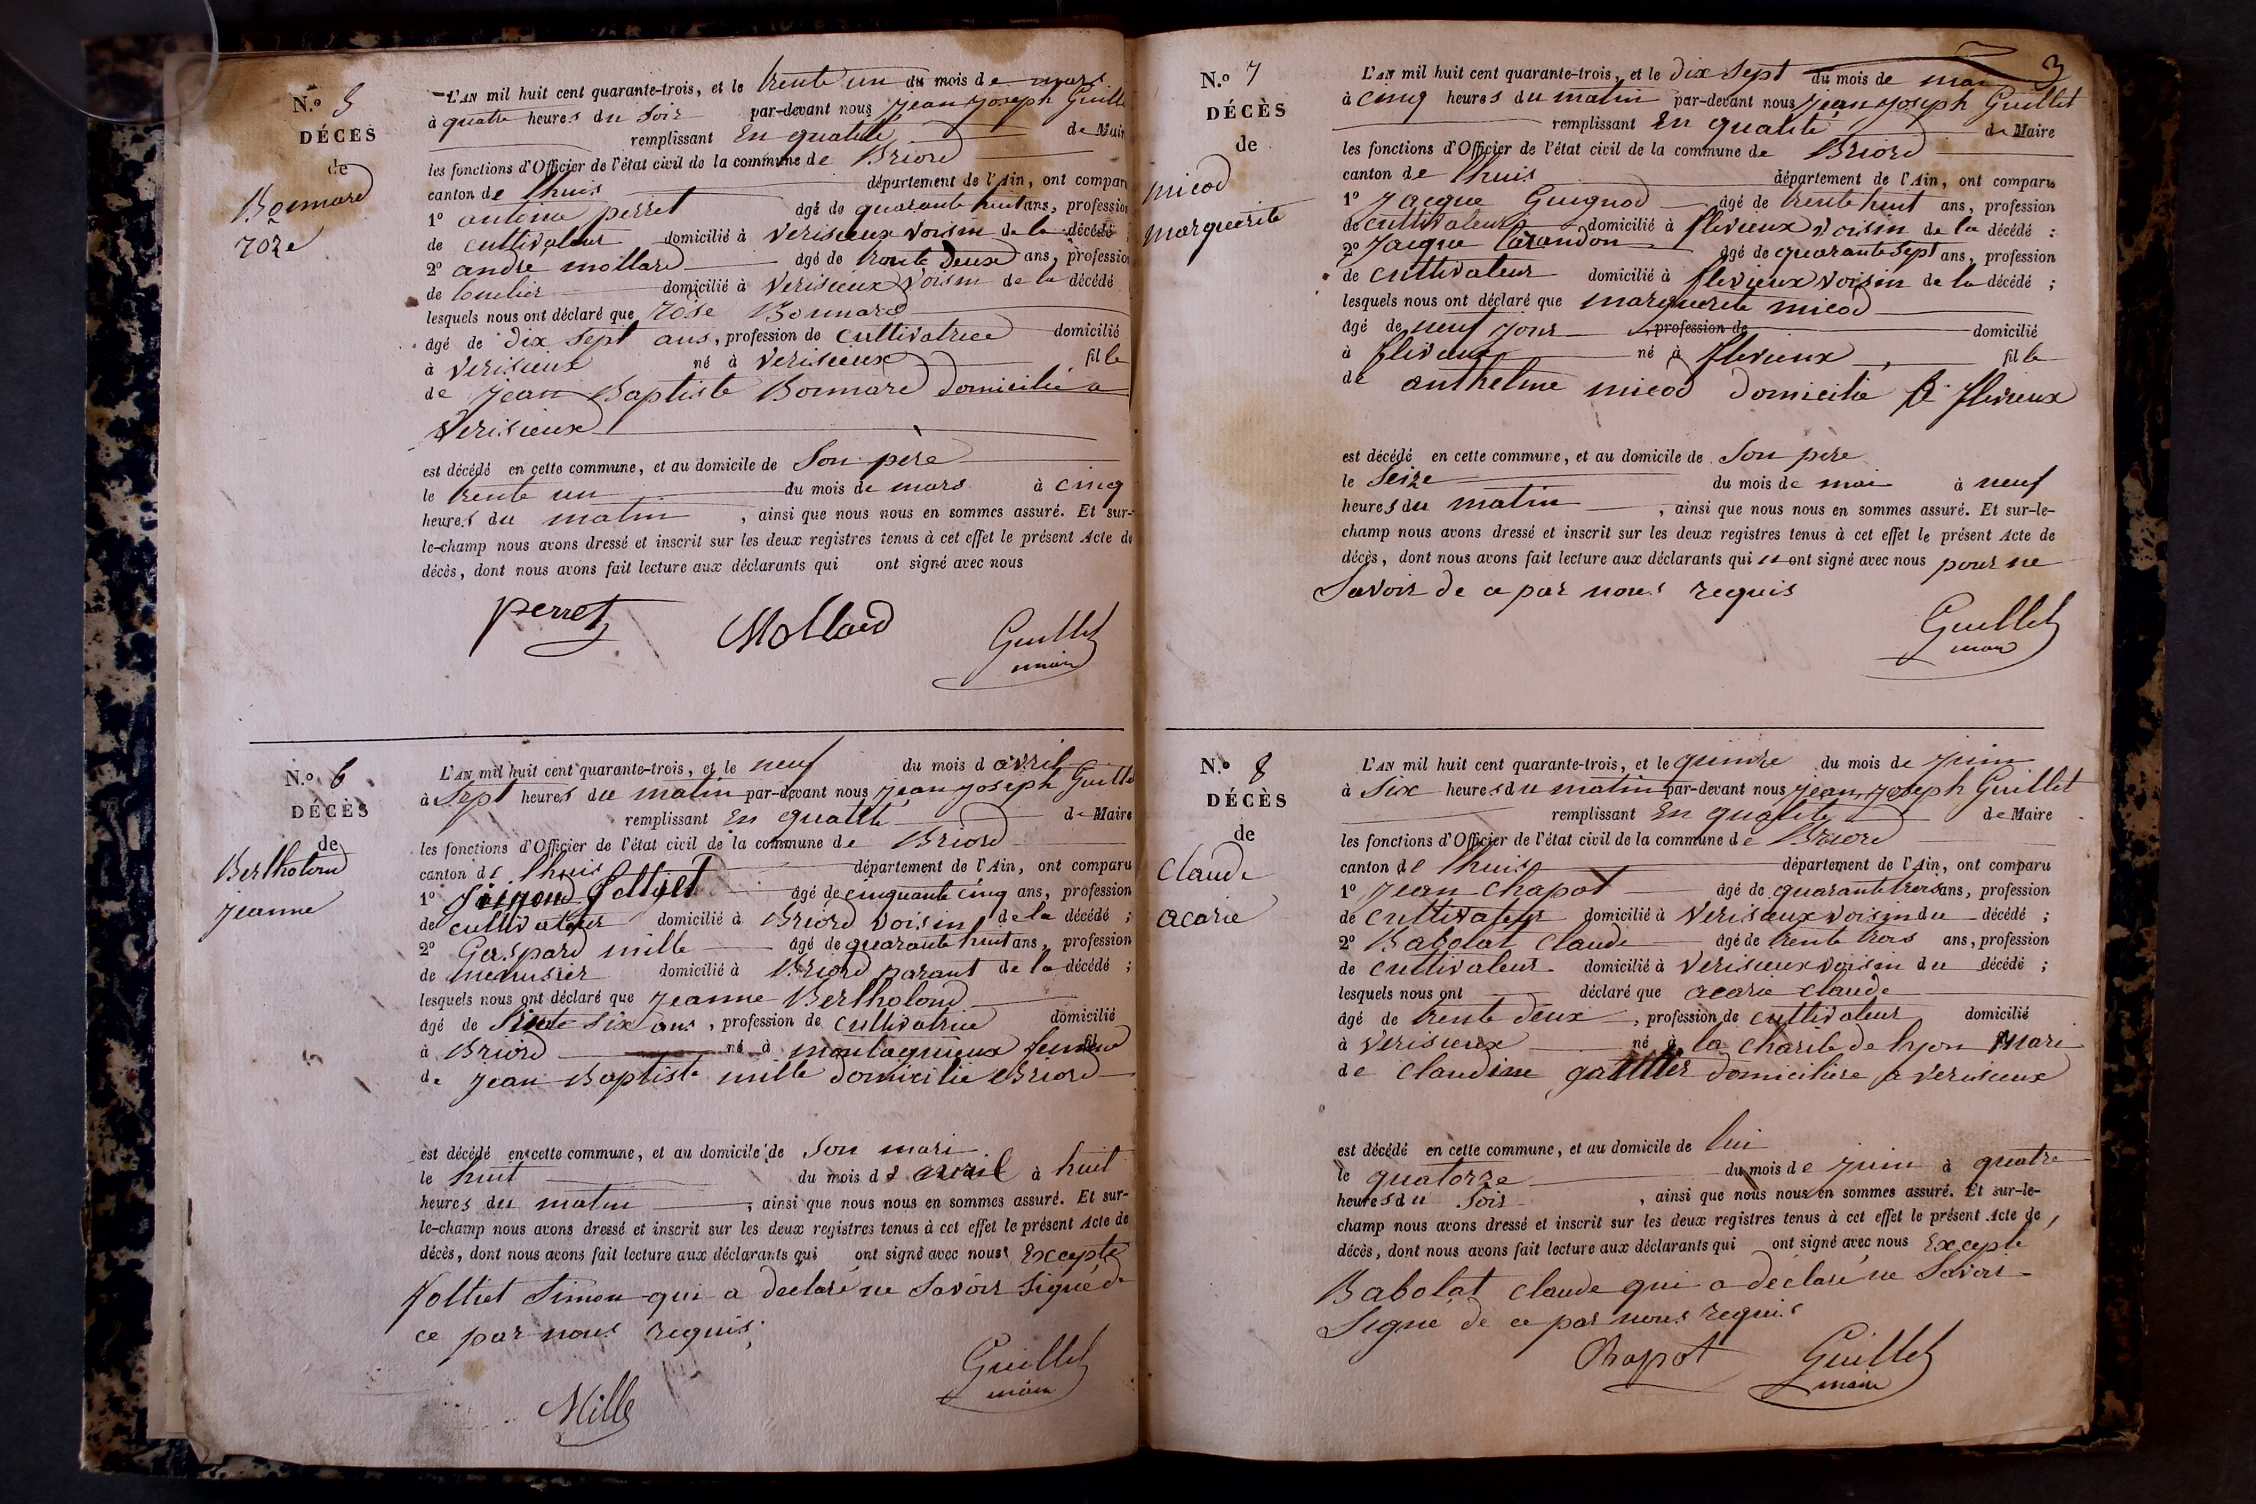 N.º 5
DÉCÈS
de
Bonnard
roze
L'AN mil huit cent quarante-trois, et le trente un du mois de mars
à quatre heures du soir par-devant nous jean joseph Guille
remplissant En qualité de Mair
les fonctions d'Officier de l'état civil de la commune de Briord
canton de lhuis département de l'Ain, ont compar
1º antoine perret âgé de quarante huit ans, profession
de cultivateur domicilié à verisieux voisin de la décédé ;
2º andré mollard âgé de trente deux ans, profession
de domicilié à verisieux voisin de la décédé
lesquels nous ont déclaré que rose Bonnard
âgé de dix sept ans, profession de cultivatrice domicilié
à verisieux né à verisieux fille
de jean Baptiste Bonnard domicilié a
verisieux
est décédé en cette commune, et au domicile de son père
le trente un du mois de mars à cinq
heures du matin, ainsi que nous nous en sommes assuré. Et sur-
le-champ nous avons dressé et inscrit sur les deux registres tenus à cet effet le présent Acte de
décès, dont nous avons fait lecture aux déclarants qui ont signé avec nous
perret Mollard Guillet
maire
N.º 6
DÉCÈS
de
Bertholond
jeanne
L'AN mil huit cent quarante-trois, et le neuf du mois d avril
à sept heures du matin par-devant nous jean joseph Guille
remplissant En qualité de Maire
les fonctions d'Officier de l'état civil de la commune de Briord
canton de lhuis département de l'Ain, ont comparu
1º âgé de cinquante cinq ans, profession
de cultivateur domicilié à Briord voisin de la décédé ;
2º Gaspard mille âgé de quarante huit ans, profession
de menusier domicilié à Briord parant de la décédé ;
lesquels nous ont déclaré que jeanne Bertholond
âgé de six ans, profession de cultivatrice domicilié
à Briord né à montagnieux femme
de jean Baptiste mille domicilié Briord
est décédé en cette commune, et au domicile de son mari
le huit du mois d avril à huit
heures du matin, ainsi que nous nous en sommes assuré. Et sur-
le-champ nous avons dressé et inscrit sur les deux registres tenus à cet effet le présent Acte de
décès, dont nous avons fait lecture aux déclarants qui ont signé avec nous Excepté
follliet Simon qui a déclaré ne savoir signé de
ce par nous requis
Mille Guillet
maire
3
N.º 7
DÉCÈS
de
micod
marguerite
L'AN mil huit cent quarante-trois, et le dix sept du mois de mai
à cinq heures du matin par-devant nous jean joseph Guillet
remplissant En qualité de Maire
les fonctions d'Officier de l'état civil de la commune de Briord
canton de lhuis département de l'Ain, ont comparu
1º jacque Guignod âgé de trente huit ans, profession
de cultivateur domicilié à flevieux voisin de la décédé :
2º jacque Carandon âgé de quarante sept ans, profession
de cultivateur domicilié à flevieux voisin de la décédé ;
lesquels nous ont déclaré que marguerite micod
âgé de neuf jour, profession de domicilié
à flevieux né à flevieux, fille
de anthelme micod domicilié à flevieux
est décédé en cette commune, et au domicile de son père
le seize du mois de mai à neuf
heures du matin, ainsi que nous nous en sommes assuré. Et sur-le-
champ nous avons dressé et inscrit sur les deux registres tenus à cet effet le présent Acte de
décès, dont nous avons fait lecture aux déclarants qui n ont signé avec nous pour ne
savoir de ce par nous requis
Guillet
maire
N.º 8
DÉCÈS
de
Claude
acarie
L'AN mil huit cent quarante-trois, et le quinze du mois de juin
à six heures du matin par-devant nous jean joseph Guillet
remplissant En qualité de Maire
les fonctions d'Officier de l'état civil de la commune de Briord
canton de lhuis département de l'Ain, ont comparu
1º jean chapot âgé de quarante trois ans, profession
de cultivateur domicilié à verisieux voisin du décédé ;
2º Babolat claude âgé de trente trois ans, profession
de cultivateur domicilié à verisieux voisin du décédé ;
lesquels nous ont déclaré que acarie claude
âgé de trente deux, profession de cultivateur domicilié
à verisieux né à la charité de lyon Mari
de claudine domiciliere a verisieux
est décédé en cette commune, et au domicile de lui
le quatorze du mois de juin à quatre
heures du soir, ainsi que nous nous en sommes assuré. Et sur-le-
champ nous avons dressé et inscrit sur les deux registres tenus à cet effet le présent Acte de
décès, dont nous avons fait lecture aux déclarants qui ont signé avec nous Excepté
Babolat claude qui a déclaré ne savoir
signé de ce par nous requis
Chapot Guillet
maire